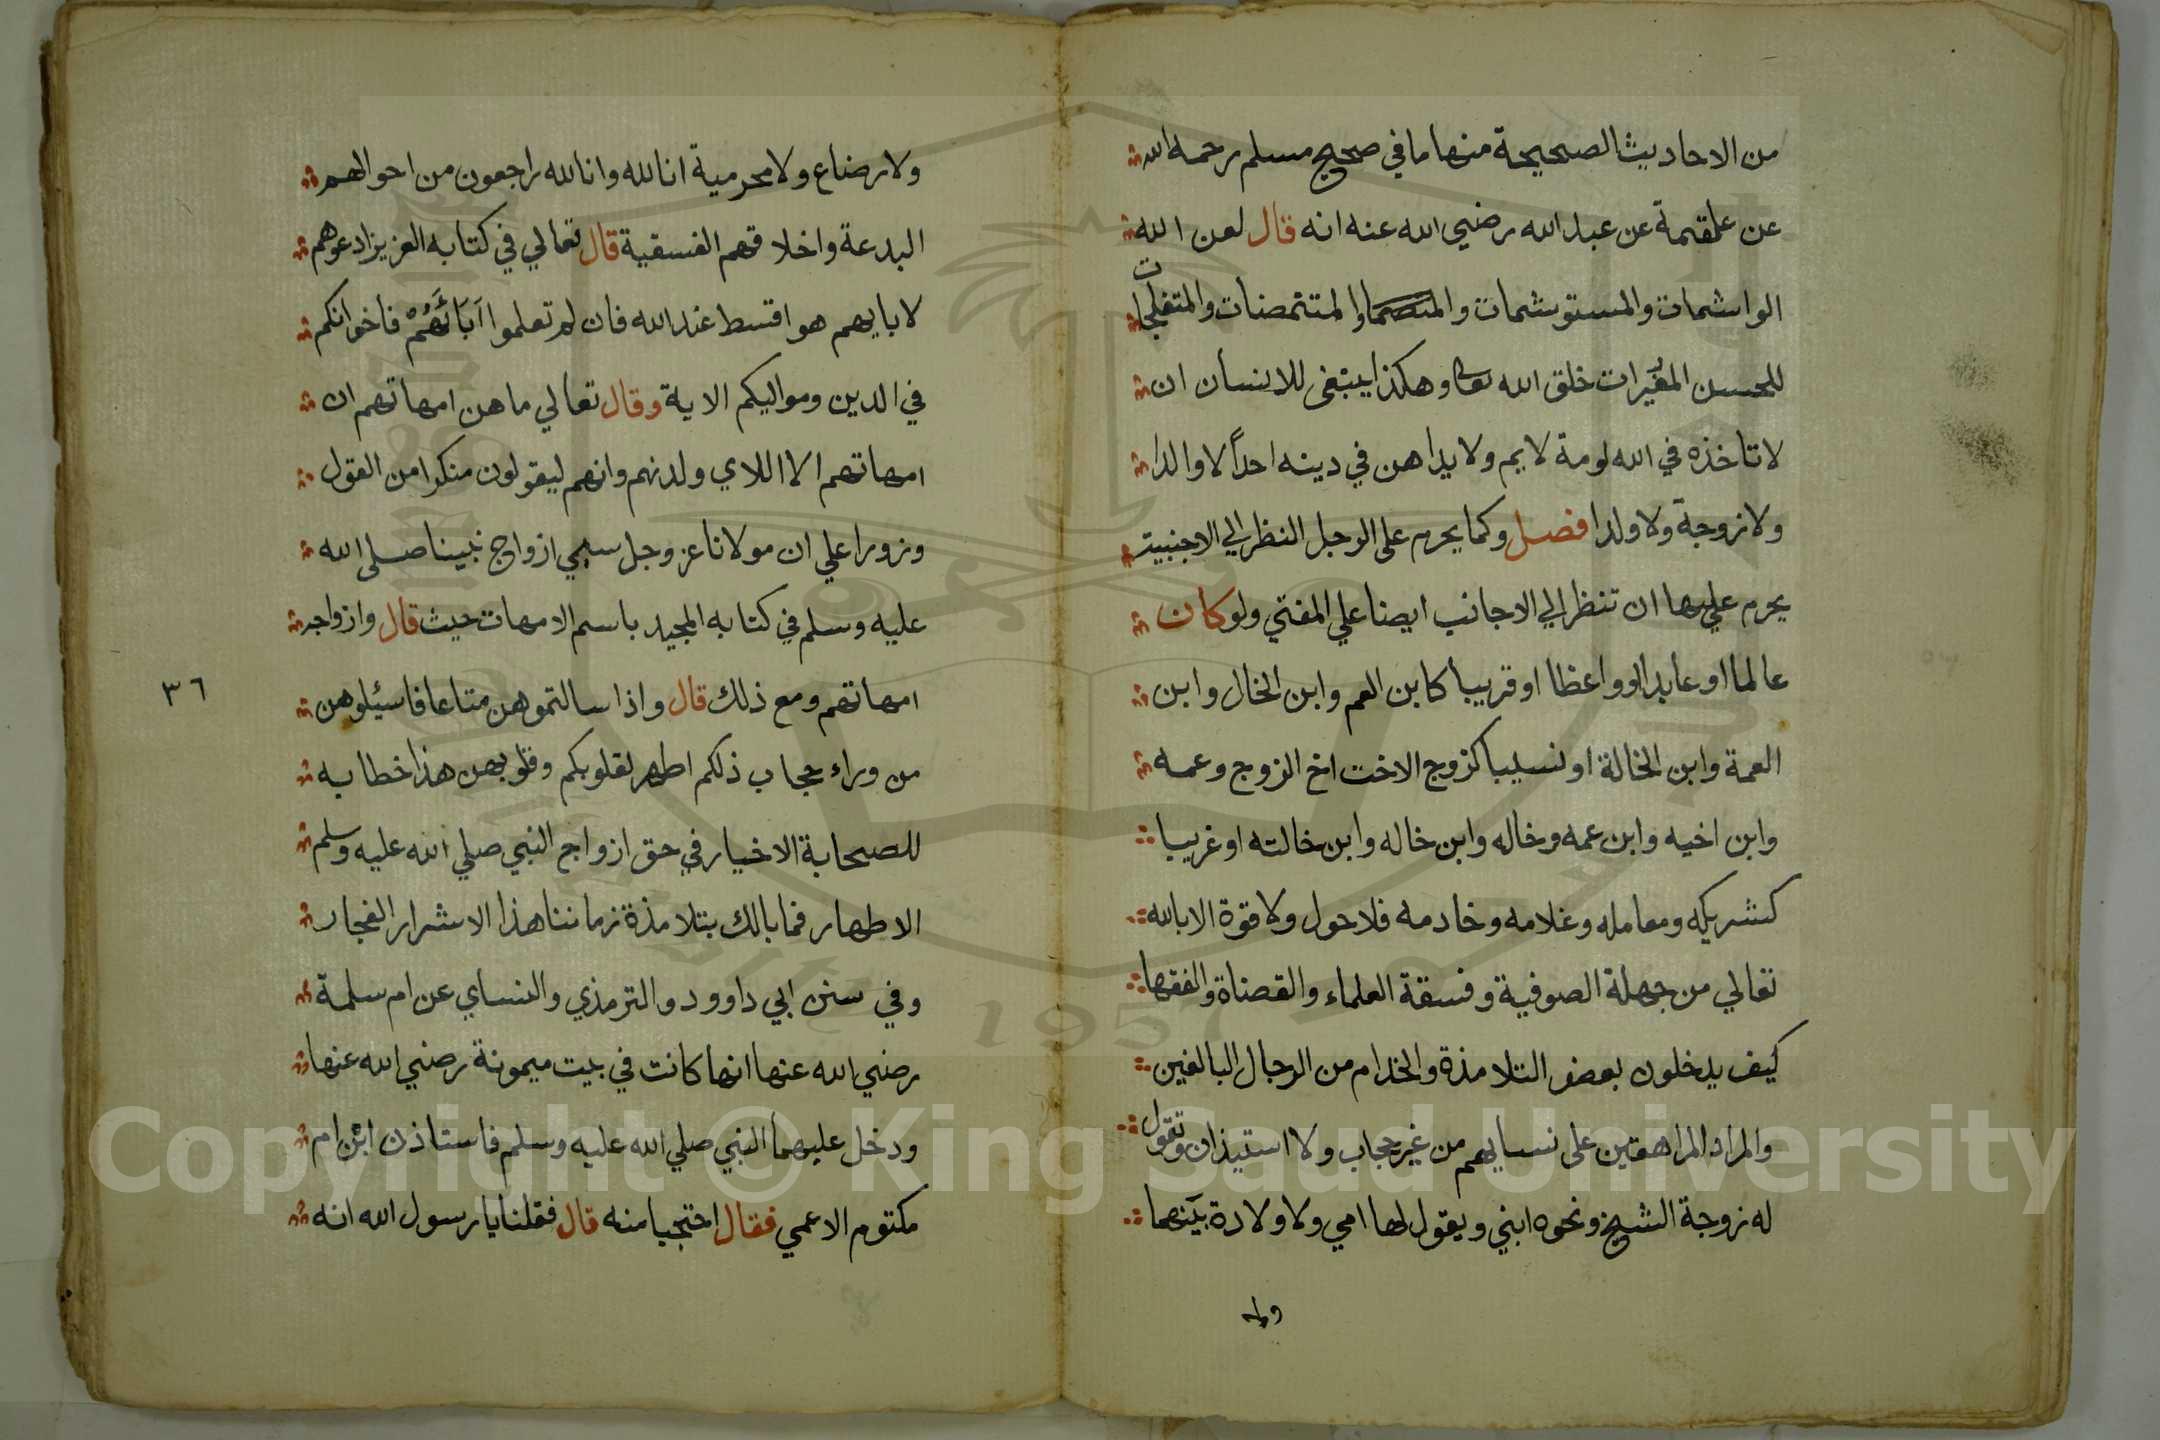 من الاحاديث الصحيحة منها ما في صحيح مسلم رحمه الله
عن علقمة عن عبد الله رضي الله عنه انه قال لعن الله
الواشمات والمستوشمات والمتنمصات والمتفلجات
للحسن المغيرات خلق الله تعالى وهكذا ينبغى للانسان ان
لا تاخذه في الله لومة لايم ولا يداهن في دينه احداً لا والدا
ولا زوجة ولا ولدا فصل وكما يحرم على الرجل النظر الي الاجنبية
يحرم عليها ان تنظر الي الاجانب ايضا علي المفتي ولو كان
عالما او عابدا او واعظا او قريبا كابن العم وابن الخال وابن
العمة وابن الخالة او نسيبا كزوج الاخت اخ الزوج وعمه
وابن اخيه وابن عمه وخاله وابن خاله وابن خالته او غريبا
كشريكه ومعامله وغلامه وخادمه فلا حول ولا قوة الا بالله
تعالي من جهلة الصوفية وفسقة العلماء والقضاة والفقها
كيف يدخلون بعض التلامذة والخدام من الرجال البالغين
والمراد المراهقين على نسايهم من غير حجاب ولا استيذان وتقول
له زوجة الشيخ ونحوه ابني ويقول لها امي ولا ولادة بينهما
ولا
ولا رضاع ولا محرمية انا لله وانا لله راجعون من احوالهم
البدعة واخلاقهم الفسقية قال تعالي في كتابه العزيز ادعوهم
لابايهم هو اقسط عند الله فان لم تعلموا آبَائَهُمْ فاخوانكم
في الدين ومواليكم الاية وقال تعالي ما هن امهاتهم ان
امهاتهم الا اللاي ولدنهم وانهم ليقولون منكرا من القول
وزورا علي ان مولانا عز وجل سمي ازواج نبينا صلى الله
عليه وسلم في كتابه المجيد باسم الامهات حيث قال وازواجه
امهاتهم ومع ذلك قال واذا سالتموهن متاعا فاسئلوهن
من وراء حجاب ذلكم اطهر لقلوبكم وقلوبهن هذا خطابه
للصحابة الاخيار في حق ازواج النبي صلي الله عليه وسلم
الاطهار فما بالك بتلامذة زماننا هذا الاشرار الفجار
وفي سنن ابي داوود والترمذي والنساي عن ام سلمة
رضي الله عنها انها كانت في بيت ميمونة رضي الله عنها
ودخل عليهما النبي صلي الله عليه وسلم فاستاذن ابن ام
مكتوم الاعمي فقال احتجبا منه قال فقلنا يا رسول الله انه
٣٦
Copyright © King Saud University
1957